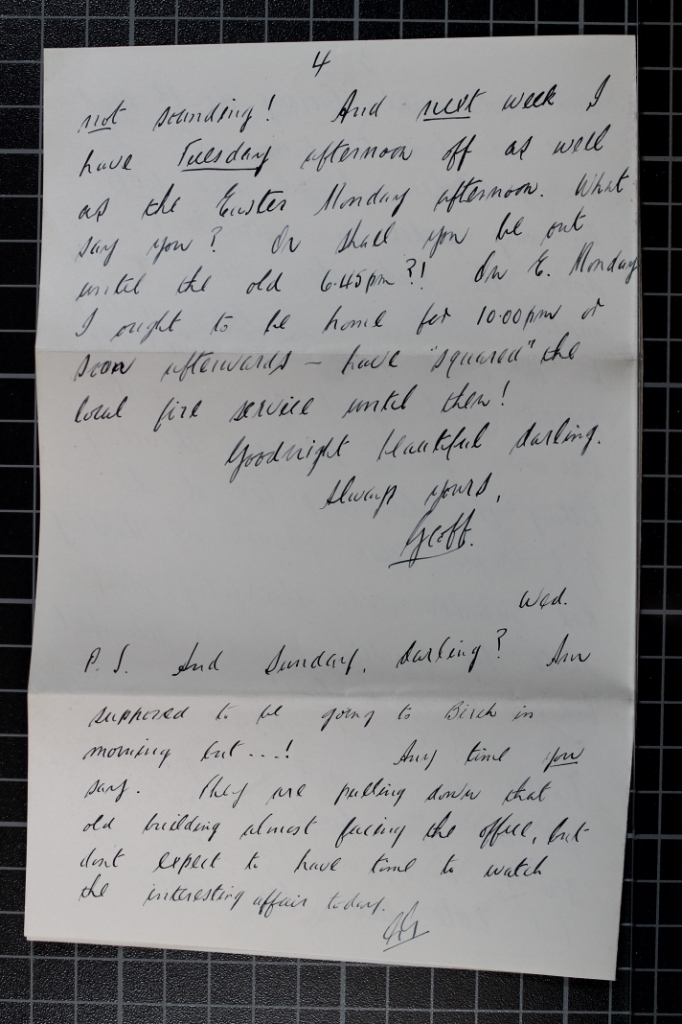 4
not sounding! And next week I
have Tuesday afternoon off as well
as the Easter Monday afternoon. What
say you? Or shall you be out
until the old 6.45pm?! On E. Monday
I ought to be home for 10.00pm or
soon afterwards – have "squared" the
local fire service until then!
Goodnight beautiful darling.
Always yours,
Geoff.
Wed.
P.S. And Sunday, darling? Am
supposed to be going to Birch in
morning but...! Any time you
say. They are pulling down that
old building almost facing the office, but
don't expect to have time to watch
the interesting affair today.